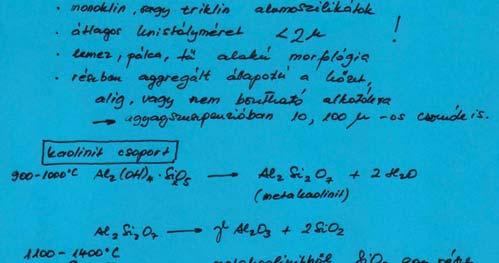 · monoklin, vagy triklin alumoszilikátok
· átlagos kristályméret < 2 μ !
· lemez, pálca, tű alakú morfológia
· részben aggregált állapotú a kőzet,
alig, vagy nem bontható alkotókra
→ agyagszuszpenzióban 10, 100 μ -os csomók is.
kaolinit csoport
900-1000°C Al2(OH)4·Si2O5 → Al2Si2O7 + 2 H2O
(metakaolinit)
Al2Si2O7 → γ Al2O3 + 2SiO2
1100 - 1400°C
metakaolinitből SiO2 egy része